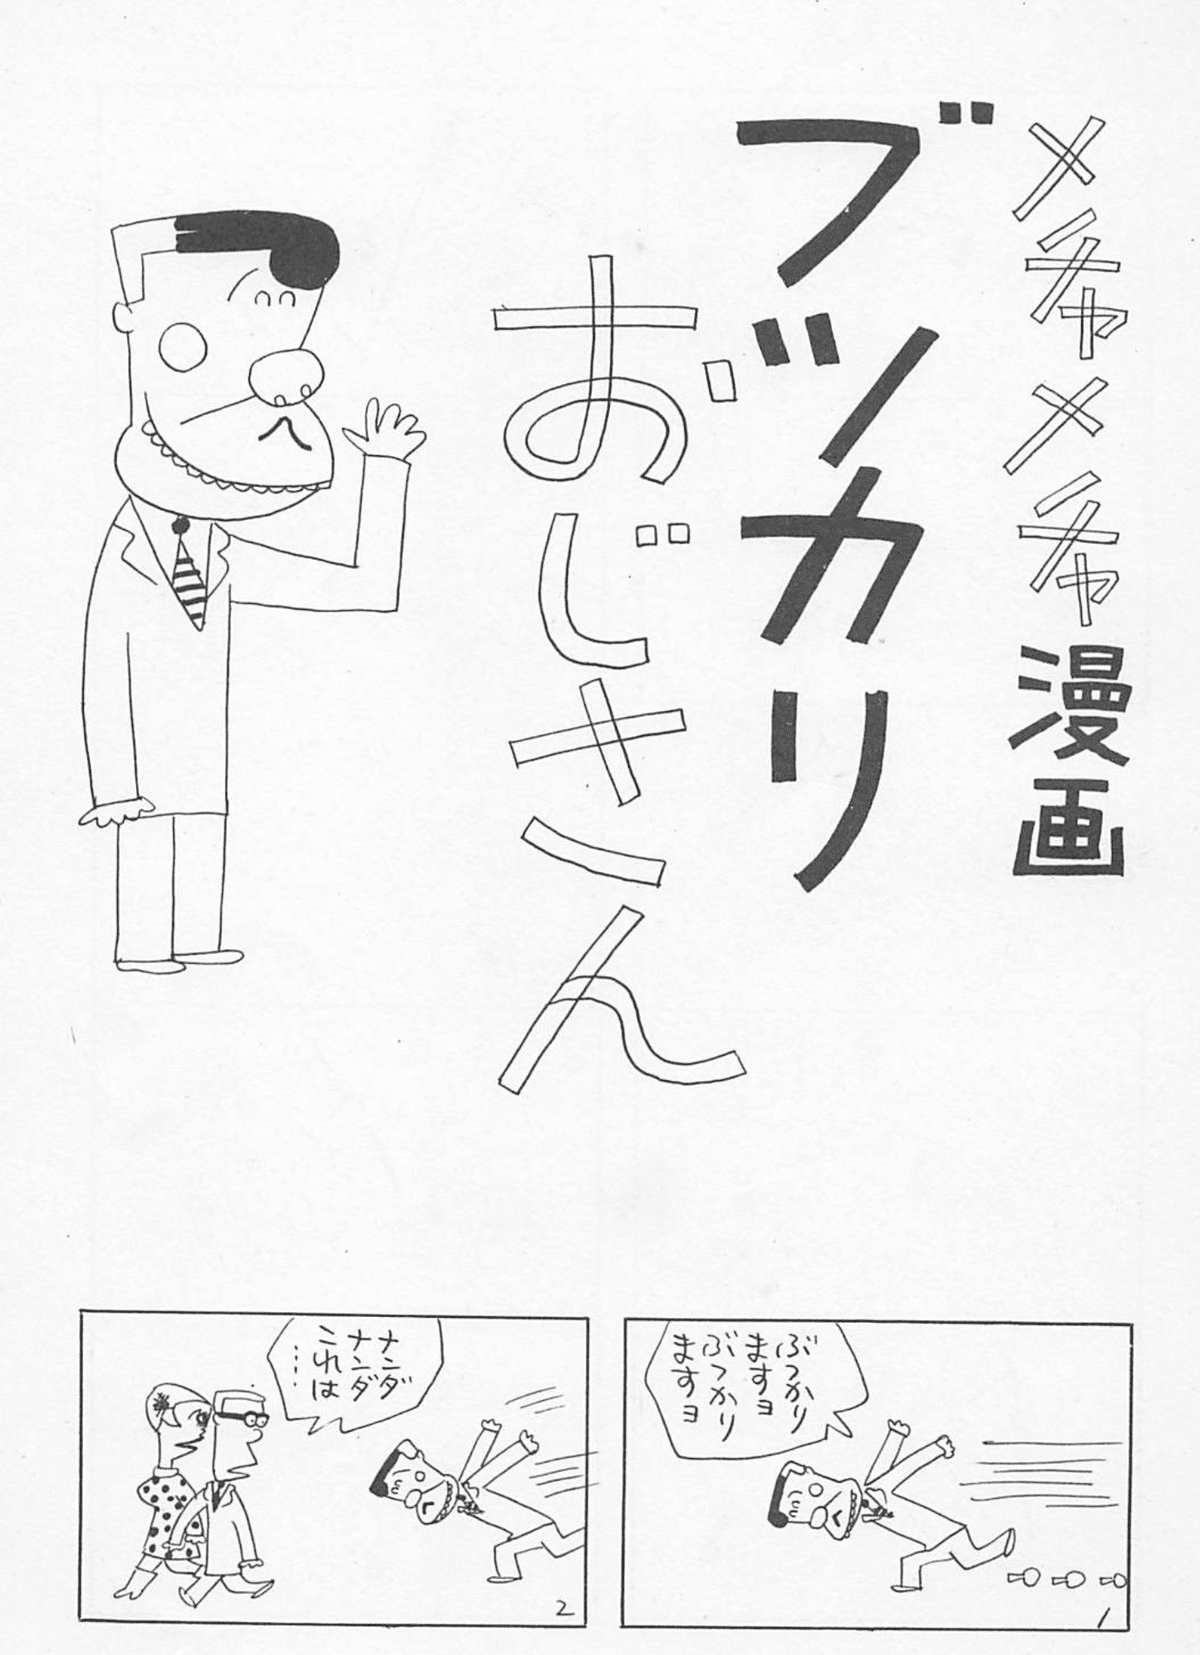 メチャメチャ漫画
ブッカリ
おじさん
ぶつかり
ますョ
ぶつかり
ますョ
1
ナンダ
ナンダ
これは
……
2